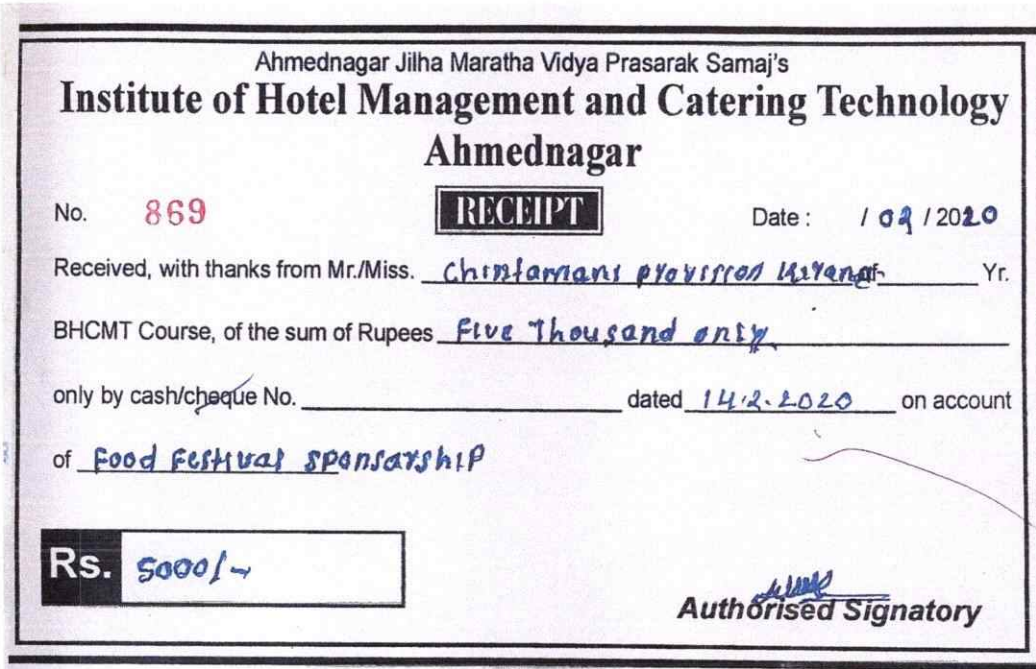 Ahmednagar Jilha Maratha Vidya Prasarak Samaj's
Institute of Hotel Management and Catering Technology
Ahmednagar
No. 869 RECEIPT Date : / 02 / 2020
Received, with thanks from Mr./Miss. Chintamani provission of Yr.
BHCMT Course, of the sum of Rupees Five Thousand only
only by cash/cheque No. dated 14.2.2020 on account
of Food Festival sponsarship
Rs. 5000/-
Authorised Signatory